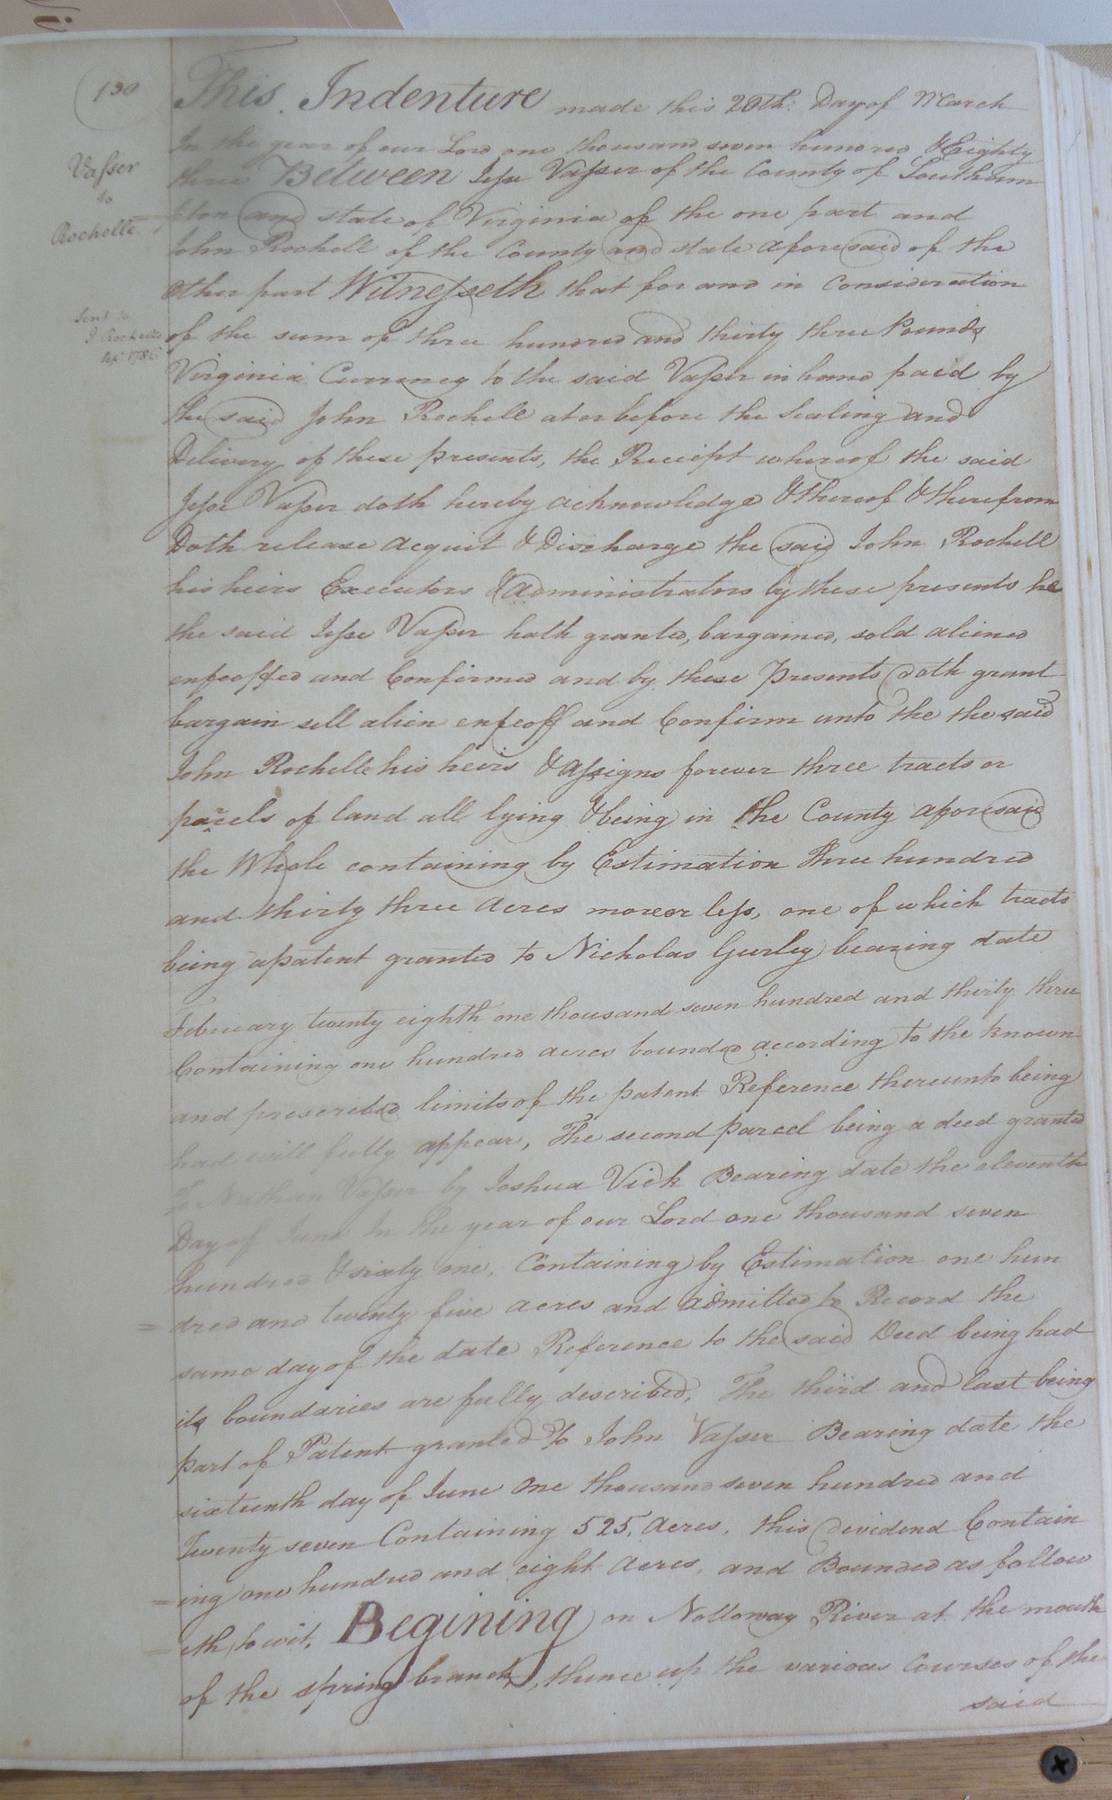 130
Vaſser
to
Rochelle
Sent to
J Rochelle
Sepr 1786
This Indenture made this 20th: Day of March
In the year of our Lord one thousand seven hundred & Eighty
three Between Jeſse Vaſser of the County of Southam
pton and state of Virginia of the one part and
John Rochell of the County and state aforesaid of the
other part Witneſseth that for and in Consideration
of the sum of three hundred and thirty three Pounds
Virginia Currency to the said Vaſser in hand paid by
the said John Rochell at or before the Sealing and
Delivery of these presents, the Receipt whereof the said
Jeſse Vaſser doth hereby acknowledge & thereof & therefrom
Doth release acquit & Discharge the said John Rochell
his heirs Executors & administrators by these presents he
the said Jeſse Vaſser hath granted, bargained, sold aliened
enfeoffed and Confirmed and by these Presents doth grant
bargain sell alien enfeoff and Confirm unto the the said
John Rochelle his heirs & aſsigns forever three tracts or
parcels of land all lying & being in the County aforesaid
the Whole containing by Estimation three hundred
and thirty three acres more or leſs, one of which tracts
being a patent granted to Nicholas Gurley bearing date
February twenty eighth one thousand seven hundred and thirty three
Containing one hundred acres bounded according to the known
and prescribed limits of the patent Reference thereunto being
had will fully appear, The second parcel being a deed granted
to Nathan Vaſser by Joshua Vick Bearing date the eleventh
Day of June In the year of our Lord one thousand seven
hundred & sixty one, Containing by Estimation one hun
= dred and twenty five acres and admitted to Record the
same day of the date Reference to the said Deed being had
its boundaries are fully described, The third and last being
part of Patent granted to John Vaſser Bearing date the
sixteenth day of June One thousand seven hundred and
Twenty seven Containing 525, Acres, this dividend Contain
= ing one hundred and eight acres, and Bounded as follow
= eth, to wit, Begining on Nottoway River at the mouth
of the spring branch, thence up the various Courses of the
said